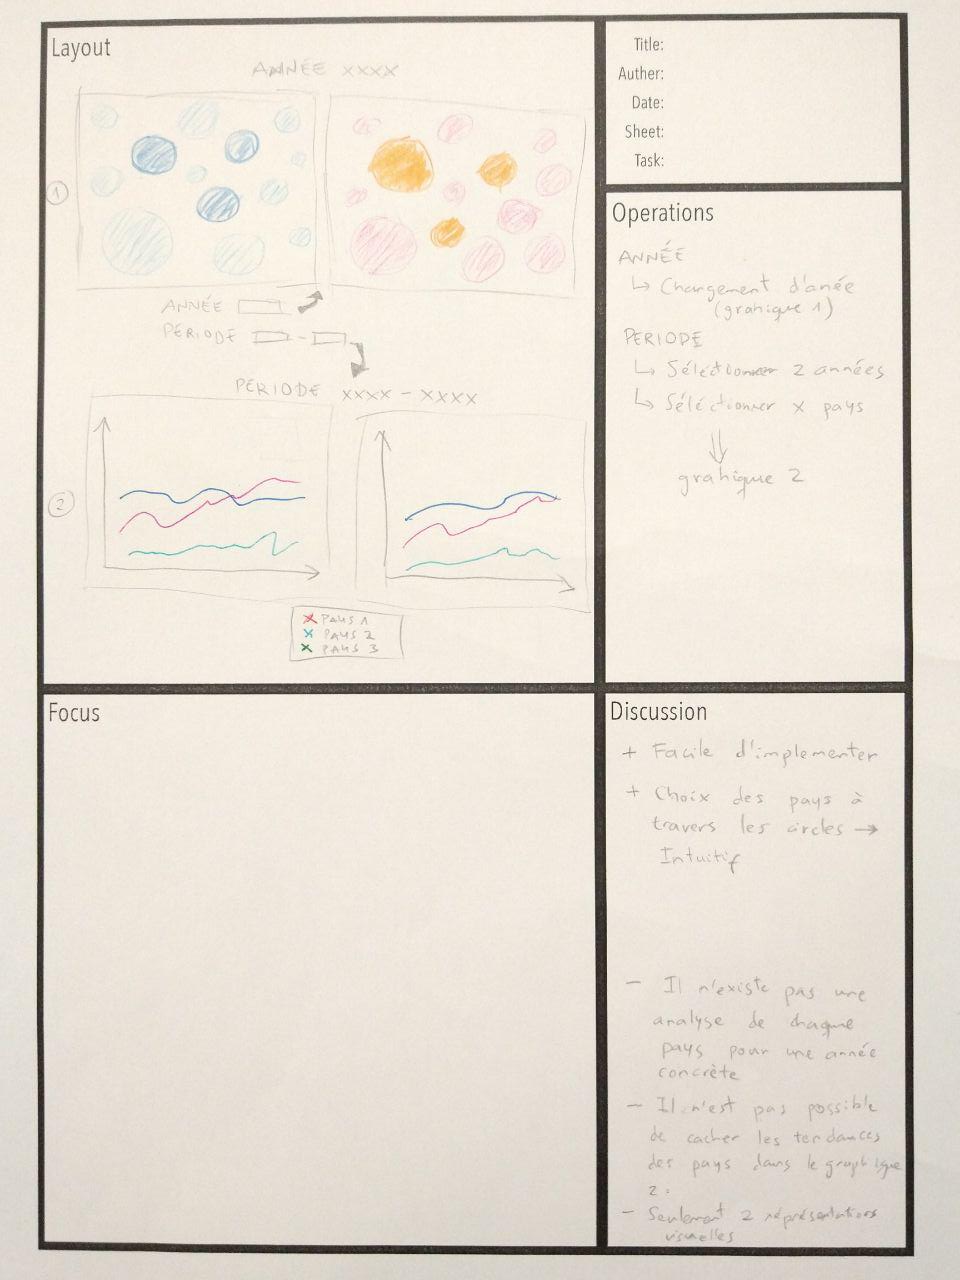 Layout
ANNÉE XXXX
1
ANNÉE
PERIODE -
PERIODE XXXX - XXXX
2
PAYS 1
PAYS 2
PAYS 3
Title:
Auther:
Date:
Sheet:
Task:
Operations
ANNÉE
↳ Changement d'anée
(grahique 1)
PERIODE
↳ Séléctionner 2 années
↳ Séléctionner x pays
grahique 2
Focus
Discussion
+ Facile d'implementer
+ Choix des pays à
travers les circles →
Intuitif
- Il n'existe pas une
analyse de chaque
pays pour une année
concrète
- Il n'est pas possible
de cacher les tendances
des pays dans le graphique
2.
- Seulement 2 réprésentations
visuelles